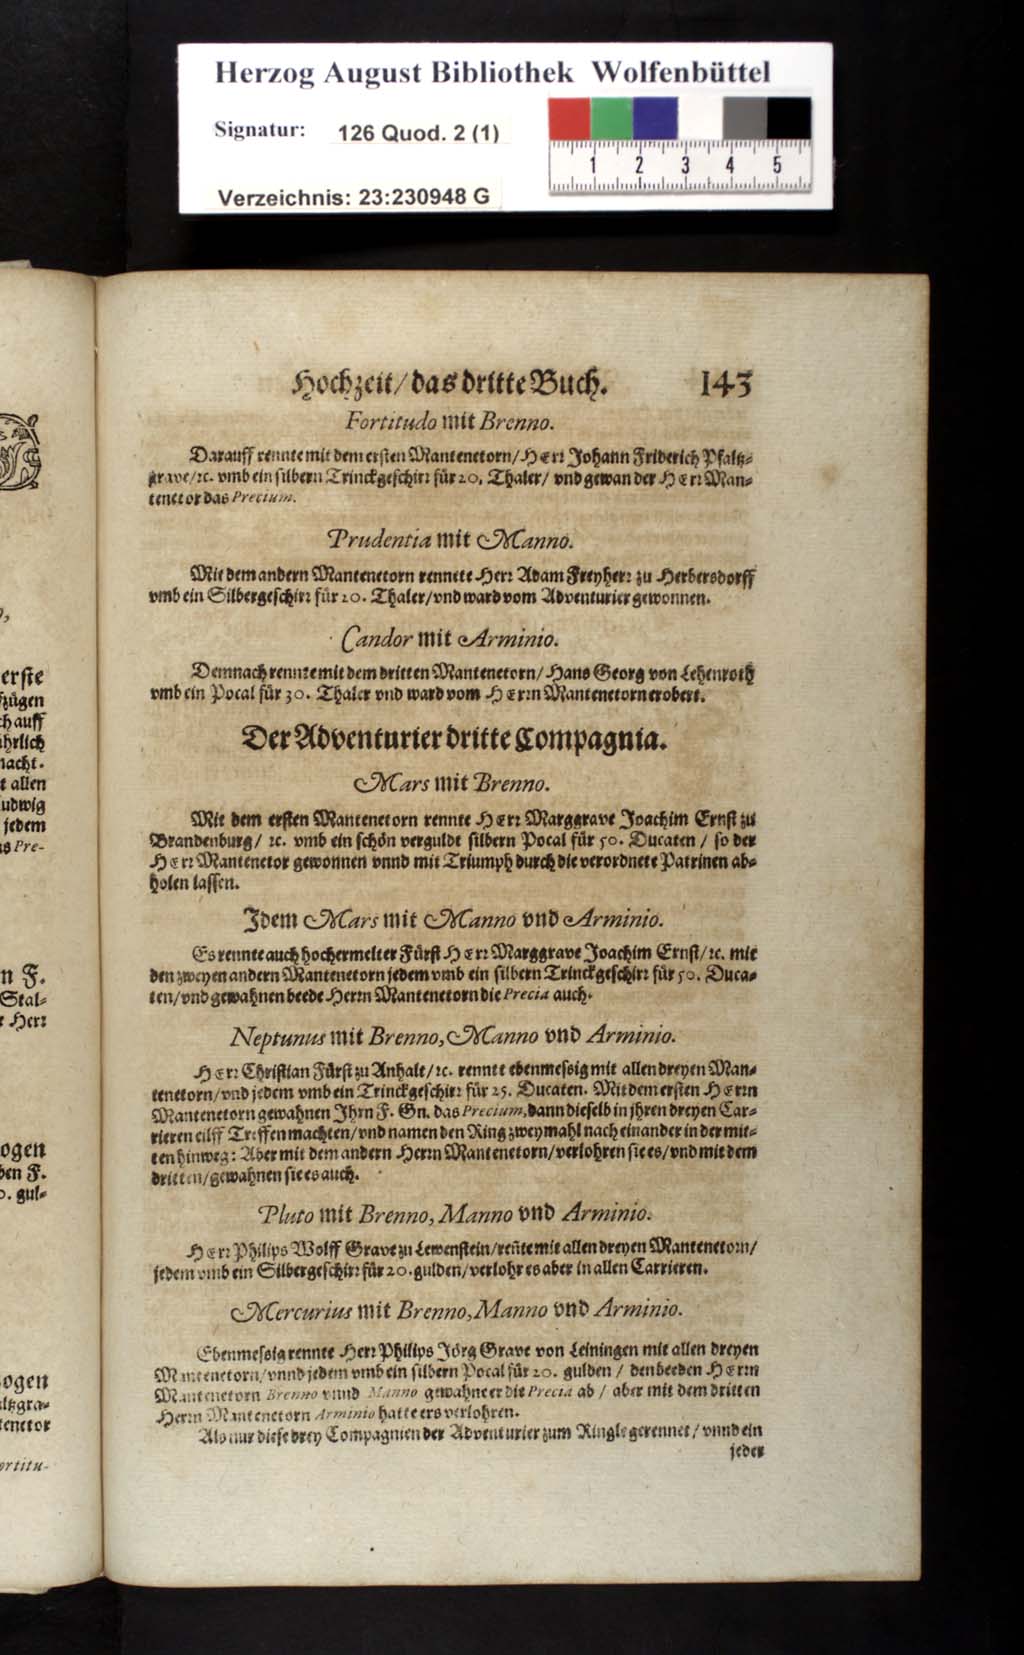 Herzog August Bibliothek Wolfenbüttel
Signatur: 126 Quod. 2 (1)
1 2 3 4 5
Verzeichnis: 23:230948 G
Hochzeit / das dritte Buch. 143
Fortitudo mit Brenno.
Darauff rennte mit dem ersten Mantenetorn / Herr Johann Friderich Pfaltz-
grave / ꝛc. vmb ein silbern Trinckgeschirr für 20. Thaler / vnd gewan der Herr Man-
tenetor das Precium.
Prudentia mit Manno.
Mit dem andern Mantenetorn rennete Herr Adam Freyherr zu Herbersdorff
vmb ein Silbergeschirr für 20. Thaler / vnd ward vom Adventurier gewonnen.
Candor mit Arminio.
Demnach rennte mit dem dritten Mantenetorn / Hans Georg von Lehenroth
vmb ein Pocal für 30. Thaler vnd ward vom Herrn Mantenetorn erobert.
Der Adventurier dritte Compagnia.
Mars mit Brenno.
Mit dem ersten Mantenetorn rennte Herr Marggrave Joachim Ernst zu
Brandenburg / ꝛc. vmb ein schön verguldt silbern Pocal für 50. Ducaten / so der
Herr Mantenetor gewonnen vnnd mit Triumph durch die verordnete Patrinen ab-
holen lassen.
Idem Mars mit Manno vnd Arminio.
Es rennte auch hochermelter Fürst Herr Marggrave Joachim Ernst / ꝛc. mit
den zweyen andern Mantenetorn jedem vmb ein silbern Trinckgeschirr für 50. Duca-
ten / vnd gewahnen beede Herrn Mantenetorn die Precia auch.
Neptunus mit Brenno, Manno vnd Arminio.
Herr Christian Fürst zu Anhalt / ꝛc. rennte ebenmessig mit allen dreyen Man-
tenetorn / vnd jedem vmb ein Trinckgeschirr für 25. Ducaten. Mit dem ersten Herrn
Mantenetorn gewahnen Ihrn F. Gn. das Precium, dann dieselb in jhren dreyen Car-
rieren eilff Treffen machten / vnd namen den Ring zweymahl nach einander in der mit-
ten hinweg: Aber mit dem andern Herrn Mantenetorn / verlohren sie es / vnd mit dem
dritten / gewahnen sie es auch.
Pluto mit Brenno, Manno vnd Arminio.
Herr Philips Wolff Grave zu Lewenstein / reñte mit allen dreyen Mantenetorn /
jedem vmb ein Silbergeschirr für 20. gulden / verlohr es aber in allen Carrieren.
Mercurius mit Brenno, Manno vnd Arminio.
Ebenmessig rennte Herr Philips Jörg Grave von Leiningen mit allen dreyen
Mantenetorn / vnnd jedem vmb ein silbern Pocal für 20. gulden / den beeden Herrn
Mantenetorn Brenno vnnd Manno gewahne er die Precia ab / aber mit dem dritten
Herrn Mantenetorn Arminio hatte ers verlohren.
Als nur diese drey Compagnien der Adventurier zum Ringle gerennet / vnnd ein
jeder
erste
zügen
ch auff
ührlich
macht.
t allen
udwig
jedem
as Pre-
n F.
Stal-
Herr
ogen
ben F.
0. gul-
ogen
altzgra-
tenetor
ortitu-